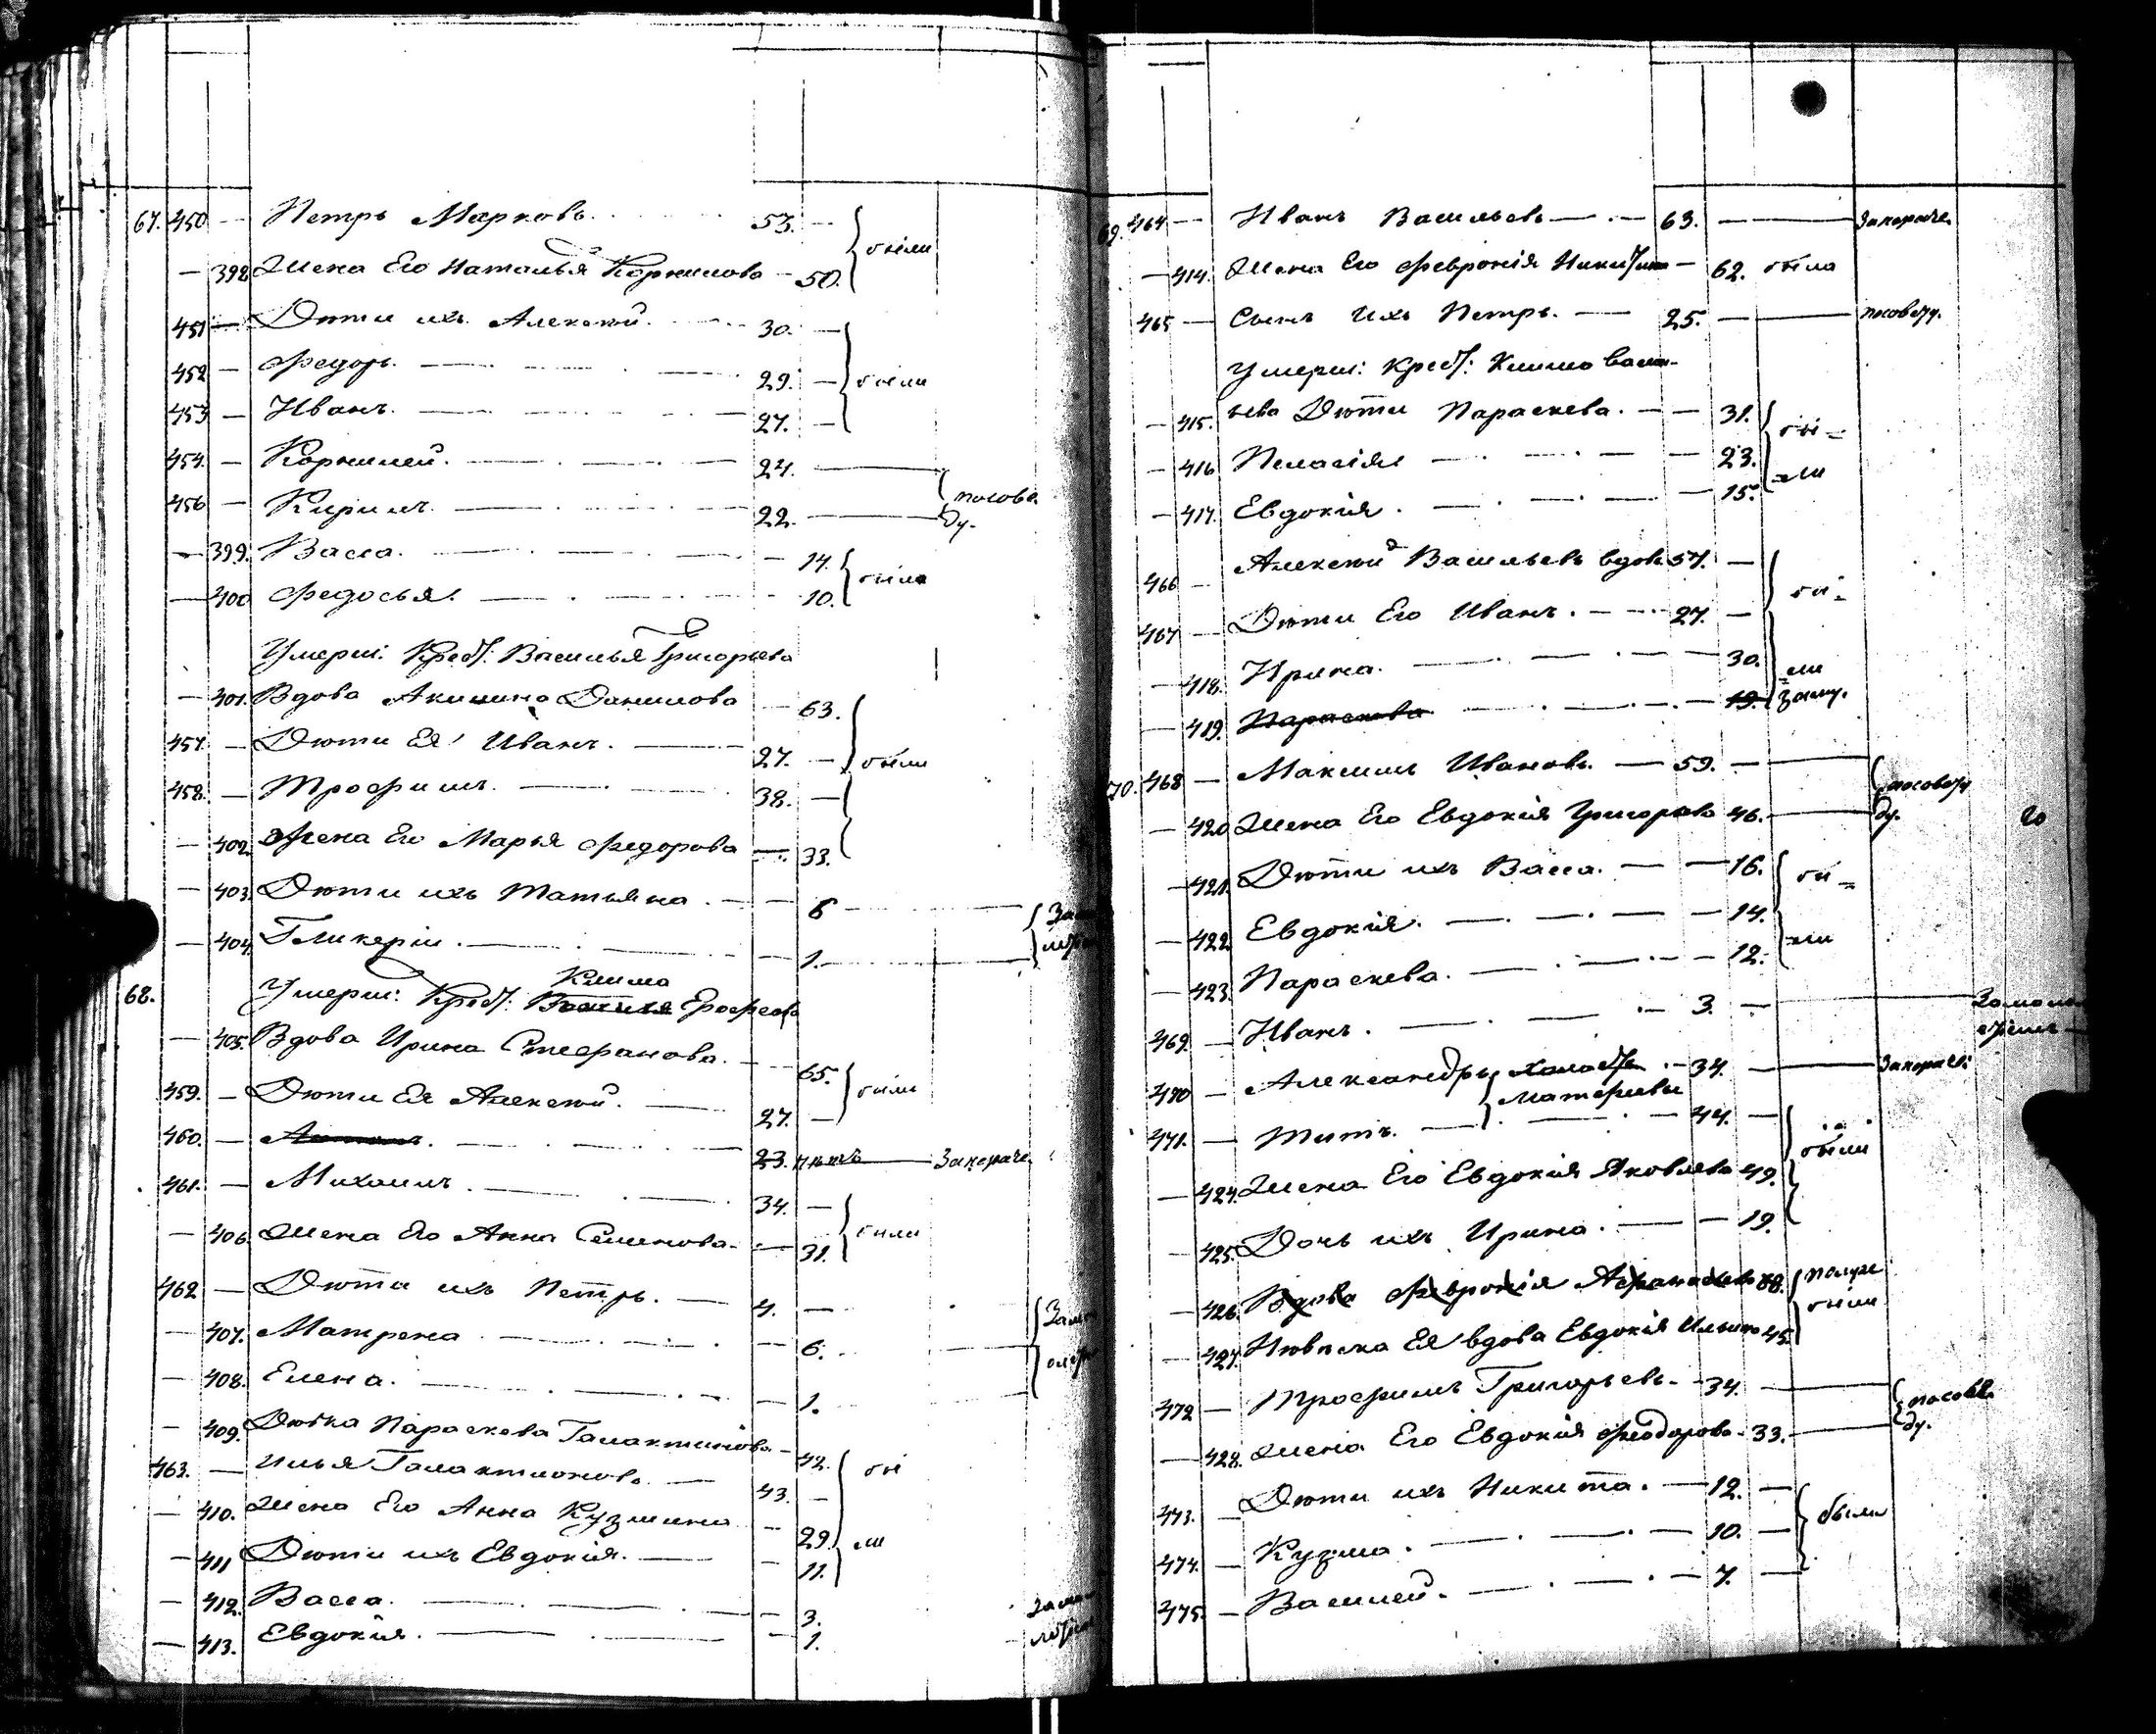 67. 450 — Петръ Марковъ. 53. — были
— 398 Жена Его Наталья Корнилова — 50.
451 — Дѣти ихъ Алексѣй. 30. —
452 — Федоръ. 29. — были
453 — Иванъ. 27. —
454. — Корнилей. 24. —
456 — Кирилъ. 22. — 
— 399. Васса. — 14. были
— 400 Федосья. — 10.
Умерш: Крест: Василья Григорьева
— 401. Вдова Акилина Данилова — 63.
457. — Дѣти Ея Иванъ. 27. — были
458. — Трофимъ. 38. —
— 402. Жена Его Марья Федорова — 33.
— 403. Дѣти ихъ Татьяна. — 6
— 404. Гликерія. — 1.
68. Умерш: Крест: Василья Клима Ерофеева
— 405. Вдова Ирина Стефанова. — 65. были
459. — Дѣти Ея Алексѣй. 27. —
460. — 23. нѣтъ — 
461. — Михаилъ. 34. — были
— 406. Жена Его Анна Семенова. — 31.
462 — Дѣти ихъ Петръ. 4. —
— 407. Матрена — 6.
— 408. Елена. — 1.
— 409. Дѣвка Параскева Галактионова — 42. бы
463. — Илья Галактионовъ. 43. —
— 410. Жена Его Анна Кузмина — 29. ли
— 411 Дѣти ихъ Евдокія. — 11.
— 412. Васса. — 3.
— 413. Евдокія. — 1.
69. 464 — Иванъ Васильевъ — 63. —
— 414. Жена Его Февронія Никитина — 62. была
465 — Сынъ ихъ Петръ. — 25. —
Умерш: Крест: Клима Василь-
— 415. ева Дѣти Параскева. — 31. бы=
— 416 Пелагія — 23. =ли
— 417. Евдокія. — 15.
466 — Алексѣй Васильевъ вдовъ 57. — бы=
467 — Дѣти Его Иванъ. — 27. —
— 418. Ирина. — 30. =ли
— 419. Параскева — 19. замуж.
70. 468 — Максимъ Ивановъ. — 59. —
— 420 Жена Его Евдокія Григорьева 46. —
— 421. Дѣти ихъ Васса. — 16. бы=
— 422. Евдокія. — 14.
— 423. Параскева. — 12. =ли
469. — Иванъ. — 3. —
470 — Александръ холостъ — 34. —
Матфеевы
471. — Титъ. — 44. — были
— 424. Жена Его Евдокія Яковлева 49.
— 425. Дочь ихъ Ирина. — 19.
— 426. Вдова Февронія Афанасьева 88.
— 427. Невѣстка Ея вдова Евдокія Ильина 45. были
472 — Трофимъ Григорьевъ — 34. —
— 428. Жена Его Евдокія Феодорова — 33. —
473. — Дѣти ихъ Никита. — 12. —
474. — Кузма. — 10. — были
475. — Василей. — 7. —